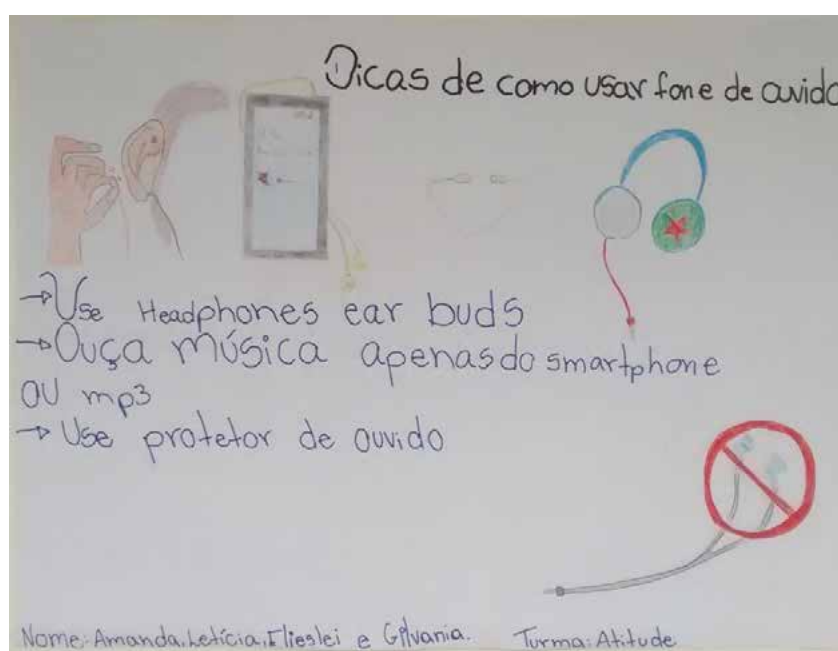 Dicas de como usar fone de ouvido
→Use Headphones ear buds
→Ouça música apenas do smartphone
ou mp3
→Use protetor de ouvido
Nome: Amanda, Letícia, Flieslei e Gilvania. Turma: Atitude